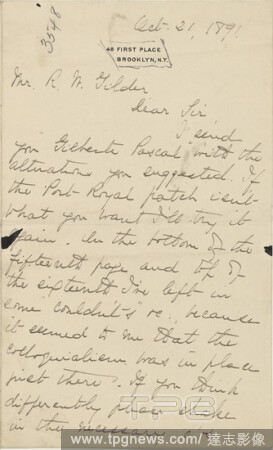 Oct. 21, 1891
3548
48 FIRST PLACE
BROOKLYN, N.Y.
Mr. R. W. Gilder
Dear Sir,
I send
you Gilberte Pascal with the
alterations you suggested. If
the Port Royal patch isn't
what you want I'll try it
again. On the bottom of the
fifteenth page and top of
the sixteenth I've left in
some couldn't's &c., because
it seemed to me that the
colloquialism was in place
just there. If you think
differently please
in the necessary
TPG
www.tpgnews.com / 達志影像